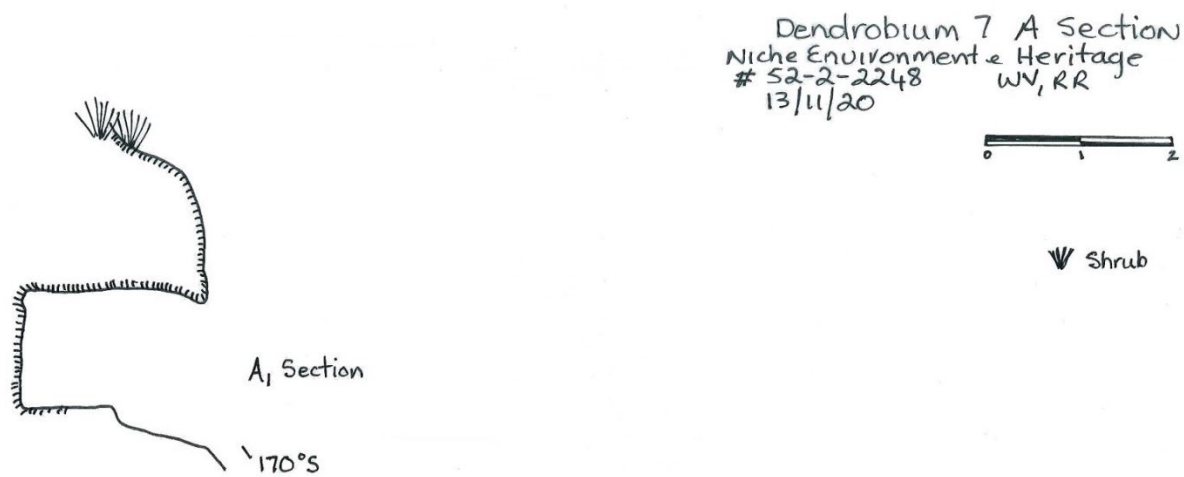 Dendrobium 7 A Section
Niche Environment & Heritage
# 52-2-2248 WV, RR
13/11/20
0 1 2
Shrub
A, Section
170°S